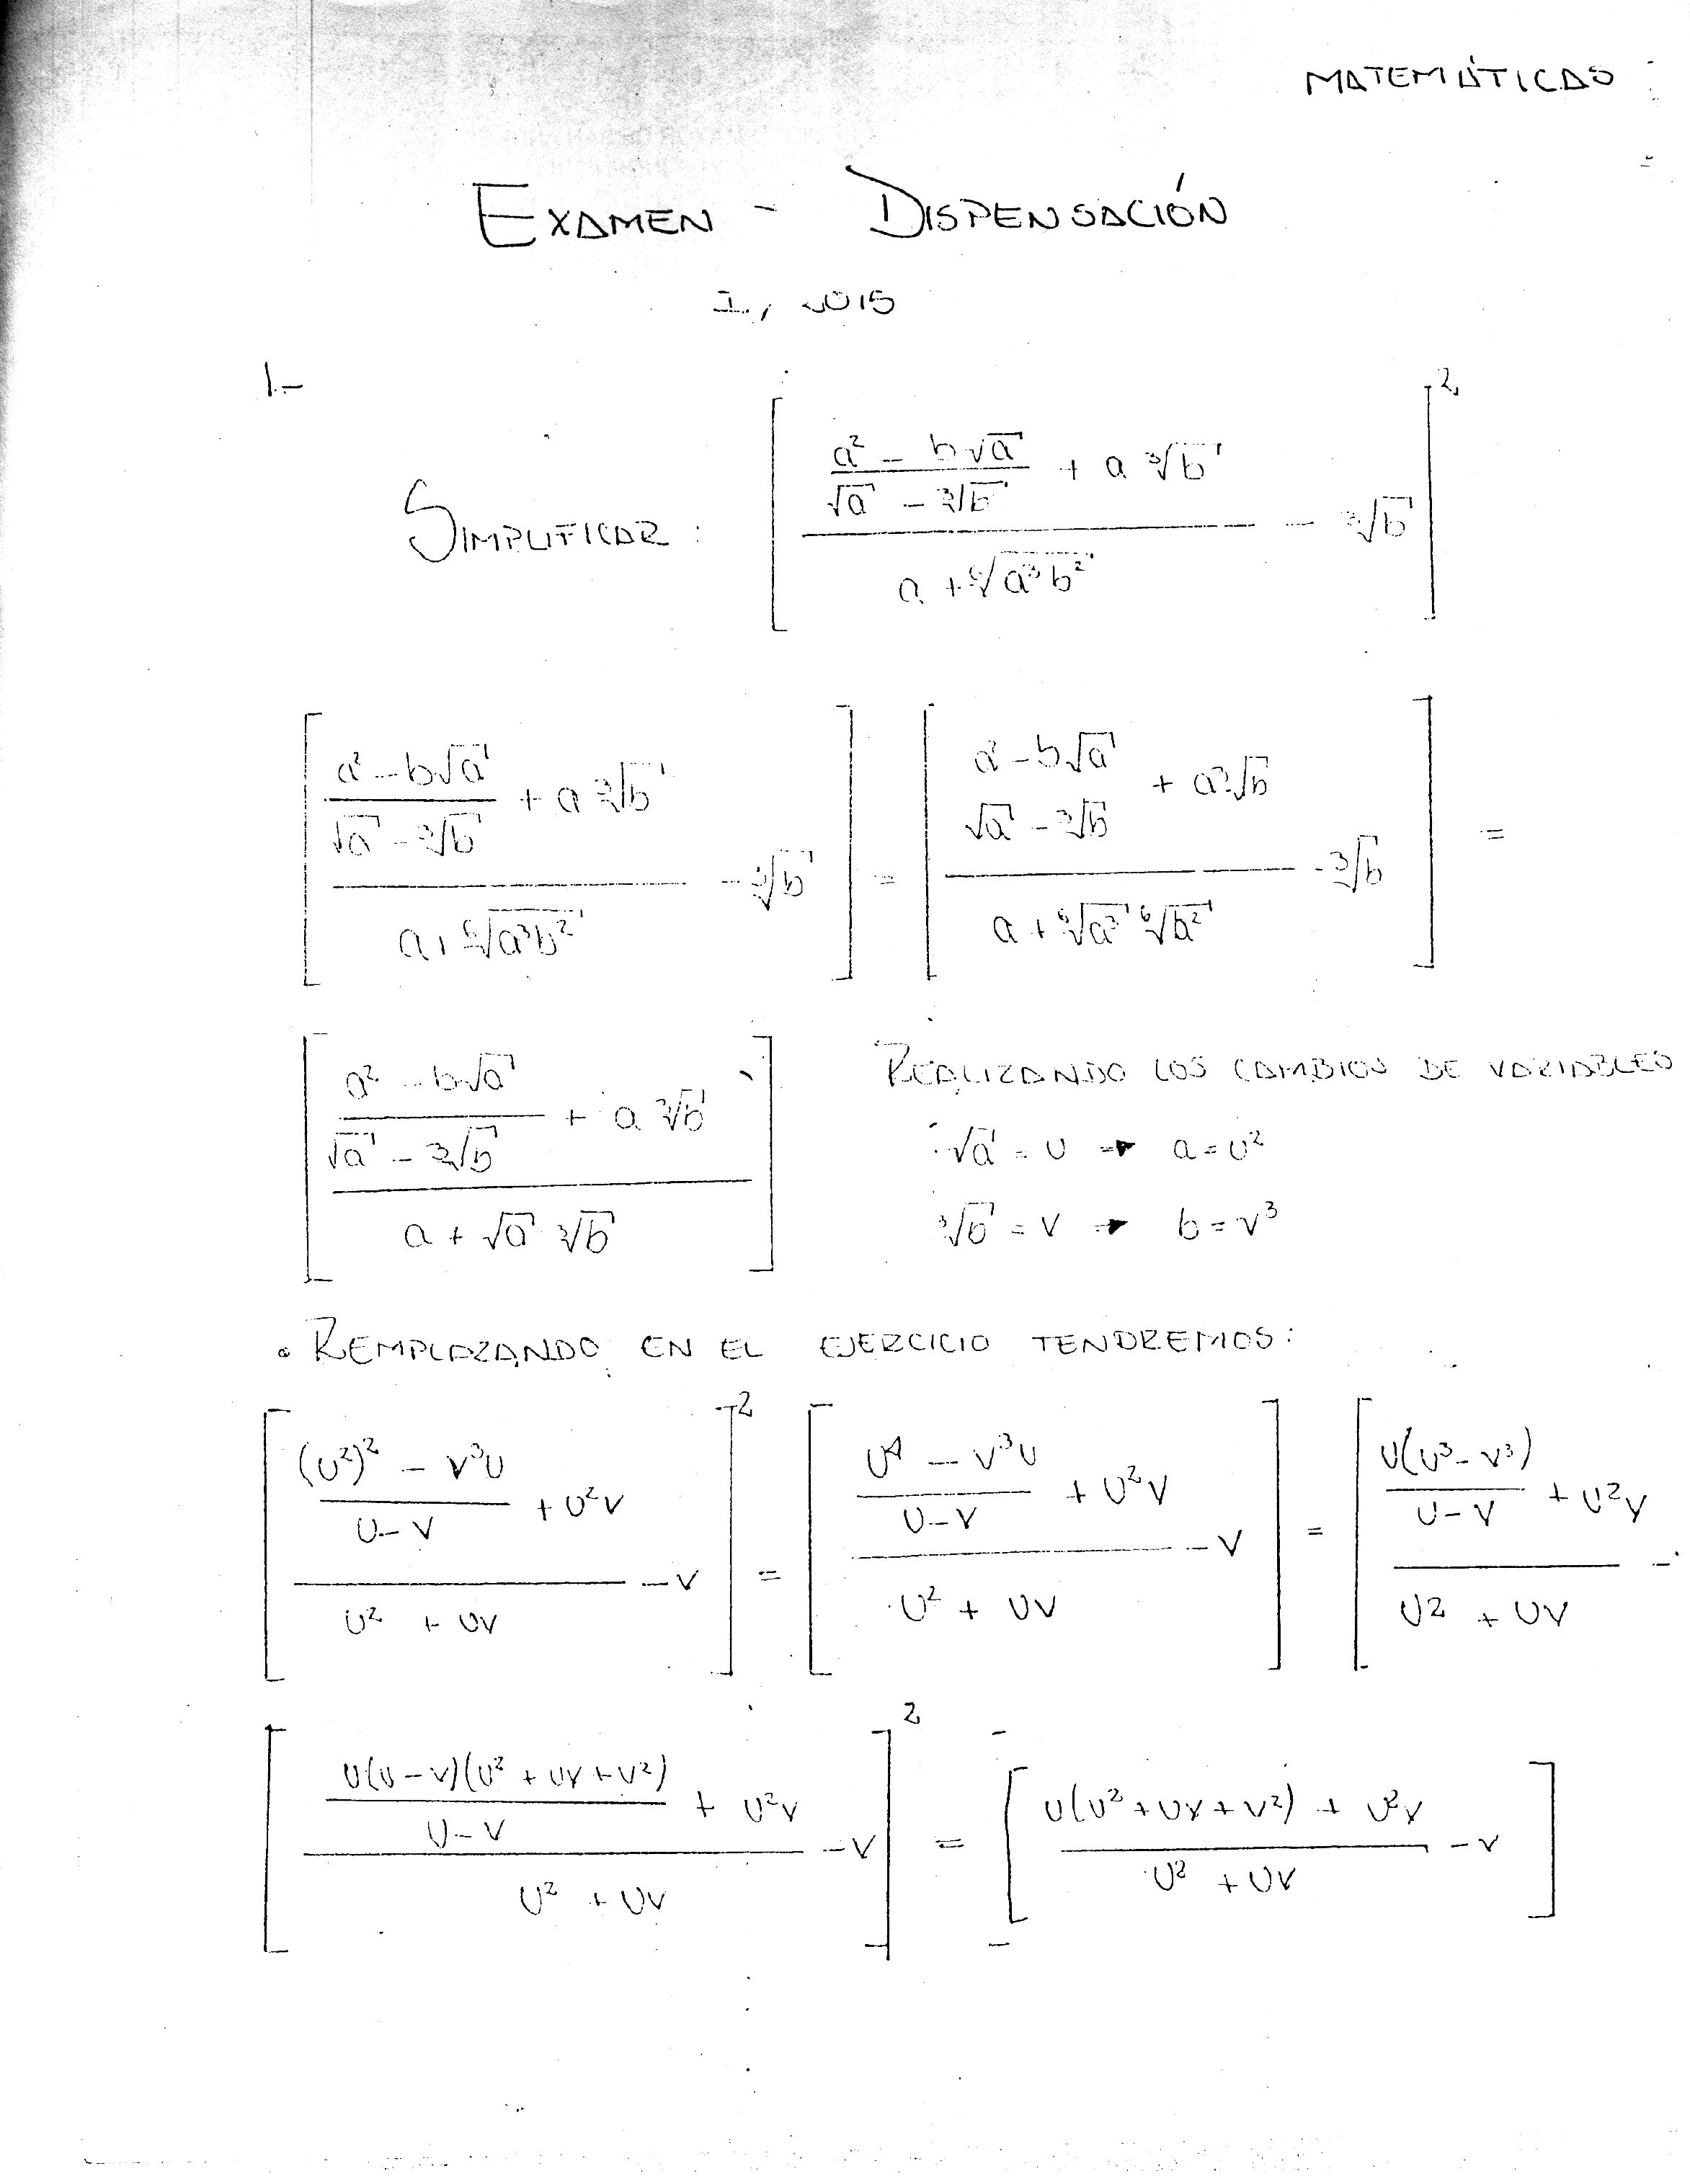 MATEMÁTICAS
EXAMEN - DISPENSACIÓN
I, 2015
1.-
SIMPLIFICAR: [ ((a² - b√a)/(√a - ∛b) + a ∛b)/(a + ⁶√(a³b²)) - ∛b ]²
[ ((a² - b√a)/(√a - ∛b) + a ∛b)/(a + ⁶√(a³b²)) - ∛b ] = [ ((a² - b√a)/(√a - ∛b) + a ∛b)/(a + ⁶√a³ ⁶√b²) - ∛b ] =
[ ((a² - b√a)/(√a - ∛b) + a ∛b)/(a + √a ∛b) ] REALIZANDO LOS CAMBIOS DE VARIABLES
√a = U → a = U²
∛b = V → b = V³
• REMPLAZANDO EN EL EJERCICIO TENDREMOS:
[ (((U²)² - V³U)/(U - V) + U²V)/(U² + UV) - V ]² = [ ((U⁴ - V³U)/(U - V) + U²V)/(U² + UV) - V ] = [ (U(U³ - V³)/(U - V) + U²V)/(U² + UV) -
[ (U(U - V)(U² + UV + V²)/(U - V) + U²V)/(U² + UV) - V ]² = [ (U(U² + UV + V²) + U²V)/(U² + UV) - V ]